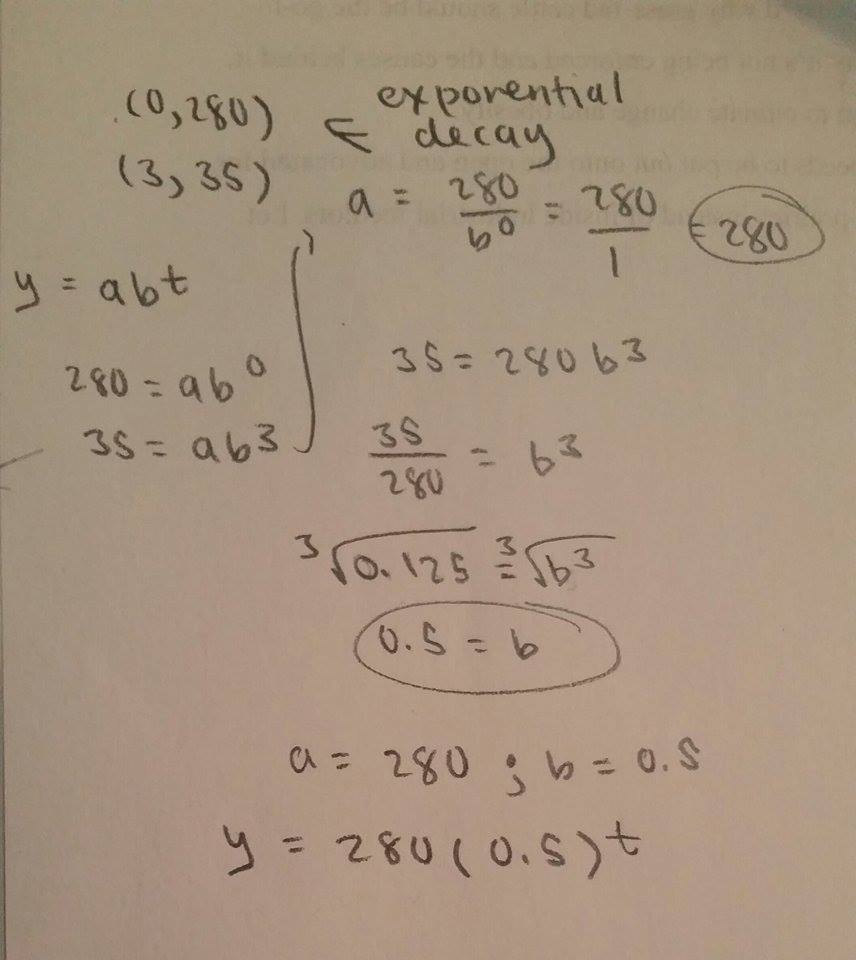 (0,280) ⇐ exponential
decay
(3,35)
a = 280/b⁰ = 280/1 = 280
y = abᵗ
280 = ab⁰
35 = ab³
35 = 280 b³
35/280 = b³
³√0.125 = ³√b³
0.5 = b
a = 280 ; b = 0.5
y = 280(0.5)ᵗ